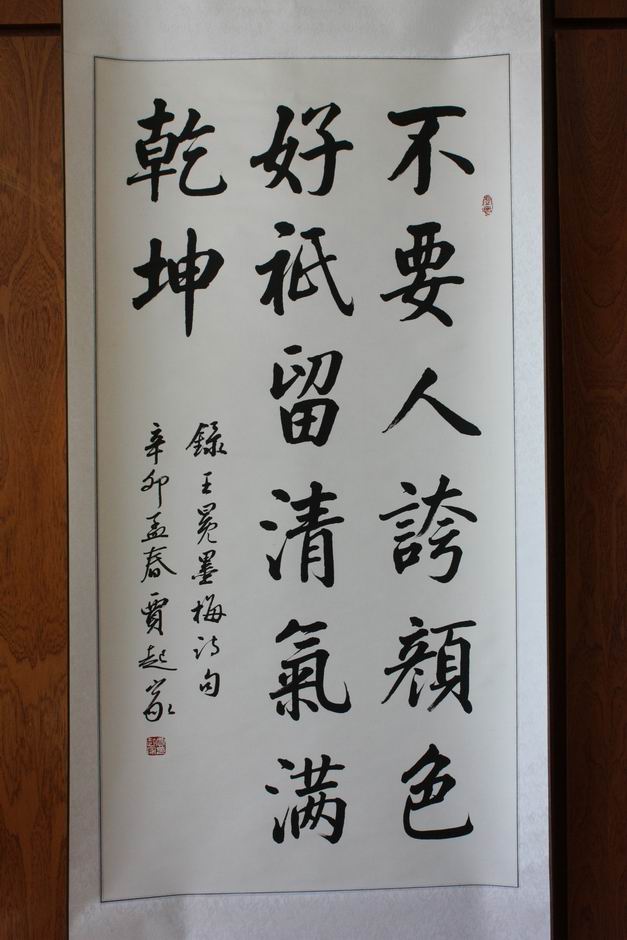 不要人誇顏色
好祇留清氣满
乾坤
錄王冕墨梅诗句
辛卯孟春賈起家